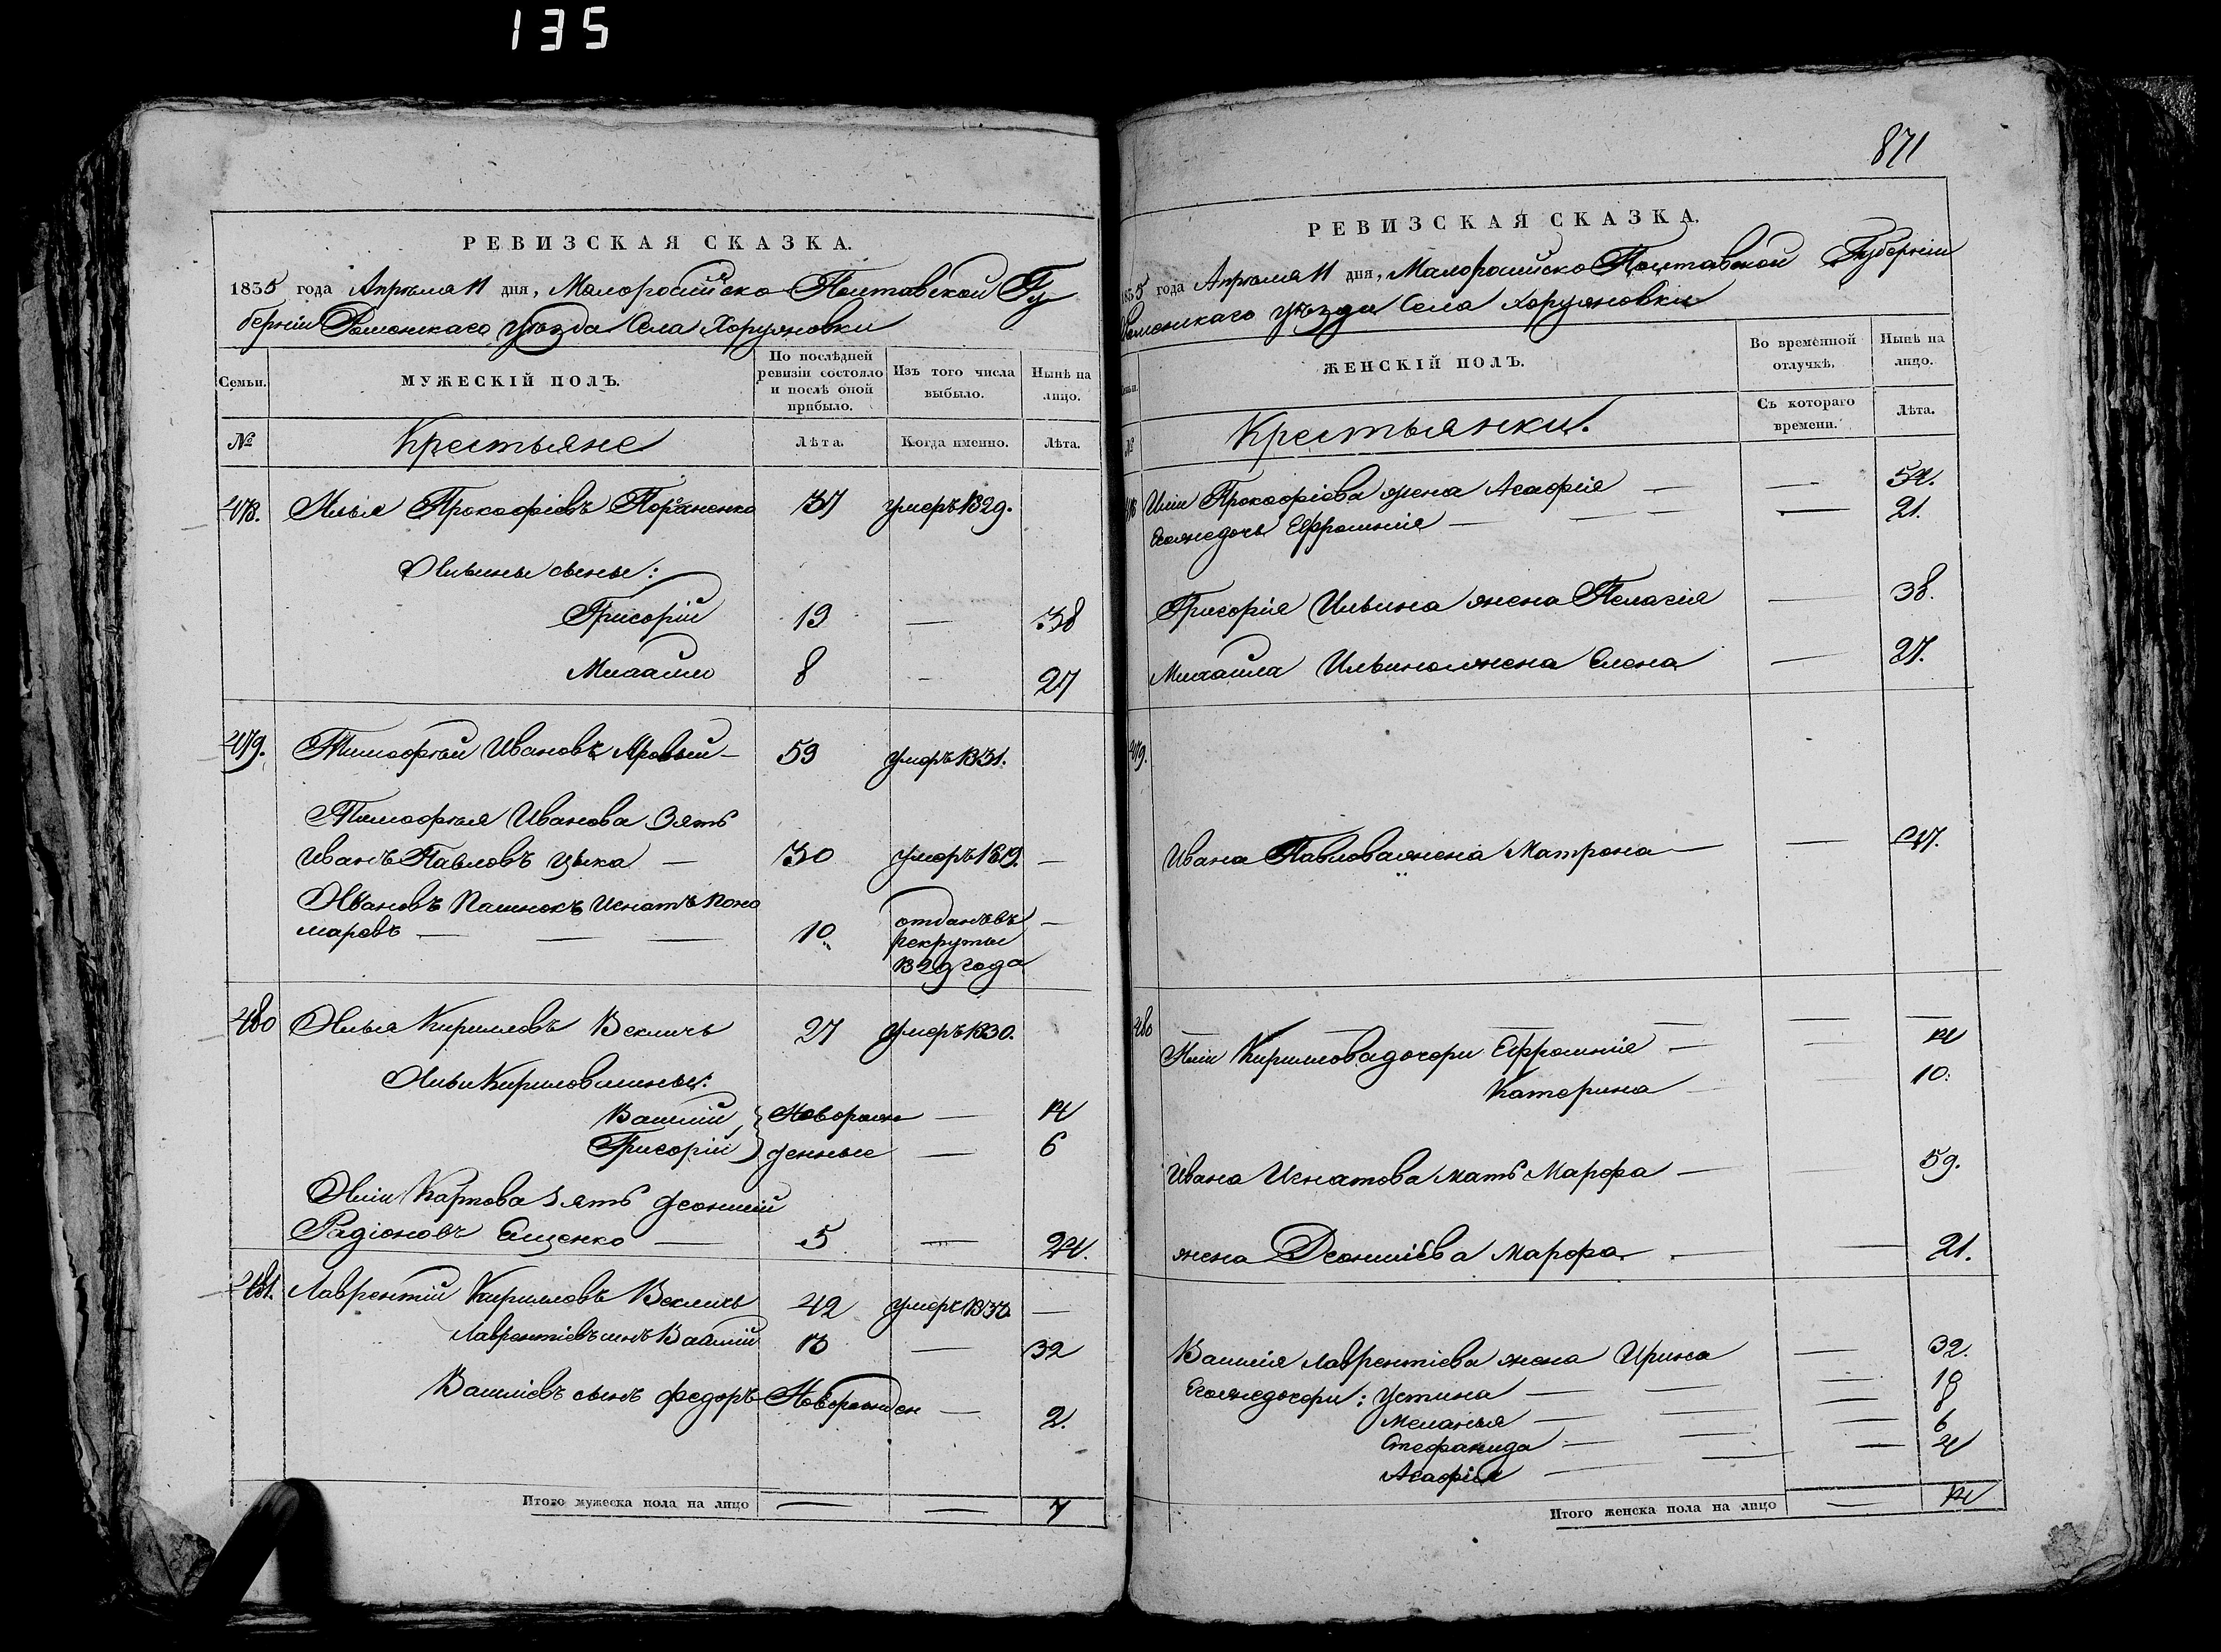 135
РЕВИЗСКАЯ СКАЗКА.
1835 года Апрѣля 11 дня, Малоросийско Полтавской Гу
берніи Роменскаго уѣзда Села Хоружовки
Семьи.
МУЖЕСКІЙ ПОЛЪ.
По послѣдней
ревизіи состояло
и послѣ оной
прибыло.
Изъ того числа
выбыло.
Нынѣ на
лицо.
№
Крестьяне
Лѣта.
Когда именно.
Лѣта.
478. Илья Прокофіевъ 37 умеръ 1829.
Ильины сыны:
Григорій 19 — 38
Михайло 8 — 27
479. Тимофѣй Ивановъ 59 умеръ 1831.
Тимофѣя Иванова Зять
Иванъ Павловъ Цыка — 30 умеръ 1819. —
Ивановъ Пасинокъ Игнатъ Поно
маровъ — 10 отданъ въ —
рекруты
1829 года
480 Илья Кирилловъ Векличь 27 умеръ 1830.
Ильи Кирилова сыны:
Василій, Новорож — 14
Григорій денные — 6
Иліи Карпова зять Феонисій
Радіоновъ Ященко — 5 — 24.
481. Лаврентій Кирилловъ Векличь 42 умеръ —
Лаврентіевъ сынъ Василій 13 — 32
Василіевъ сынъ Федоръ Новорожден — 2.
Итого мужеска пола на лицо — — 7
871
РЕВИЗСКАЯ СКАЗКА.
1835 года Апрѣля 11 дня, Малоросийско Полтавской Губерніи
Роменскаго уѣзда Села Хоружовки
Семьи.
ЖЕНСКІЙ ПОЛЪ.
Во временной
отлучкѣ.
Нынѣ на
лицо.
№
Крестьянки.
Съ котораго
времени.
Лѣта.
478 Иліи Прокофіева жена Агафія — — 54.
Его же дочь Ефросинія — — 21.
Григорія Ильина жена Пелагія — 38.
Михаила Ильина жена Елена — 27.
479.
Ивана Павлова жена Матрона — — 47.
480 — — — — —
Иліи Кириллова дочери Ефросинія — — 14
Катерина — — 10.
Ивана Игнатова мать Марфа — — 59.
жена Деонисіева Марфа — — 21.
Василія Лаврентіева жена Ирина — 32.
Его же дочери: Устина — — — 18
Меланья — — — 8
Стефанида — — — 6
Агафія — — — 4
Итого женска пола на лицо — 14